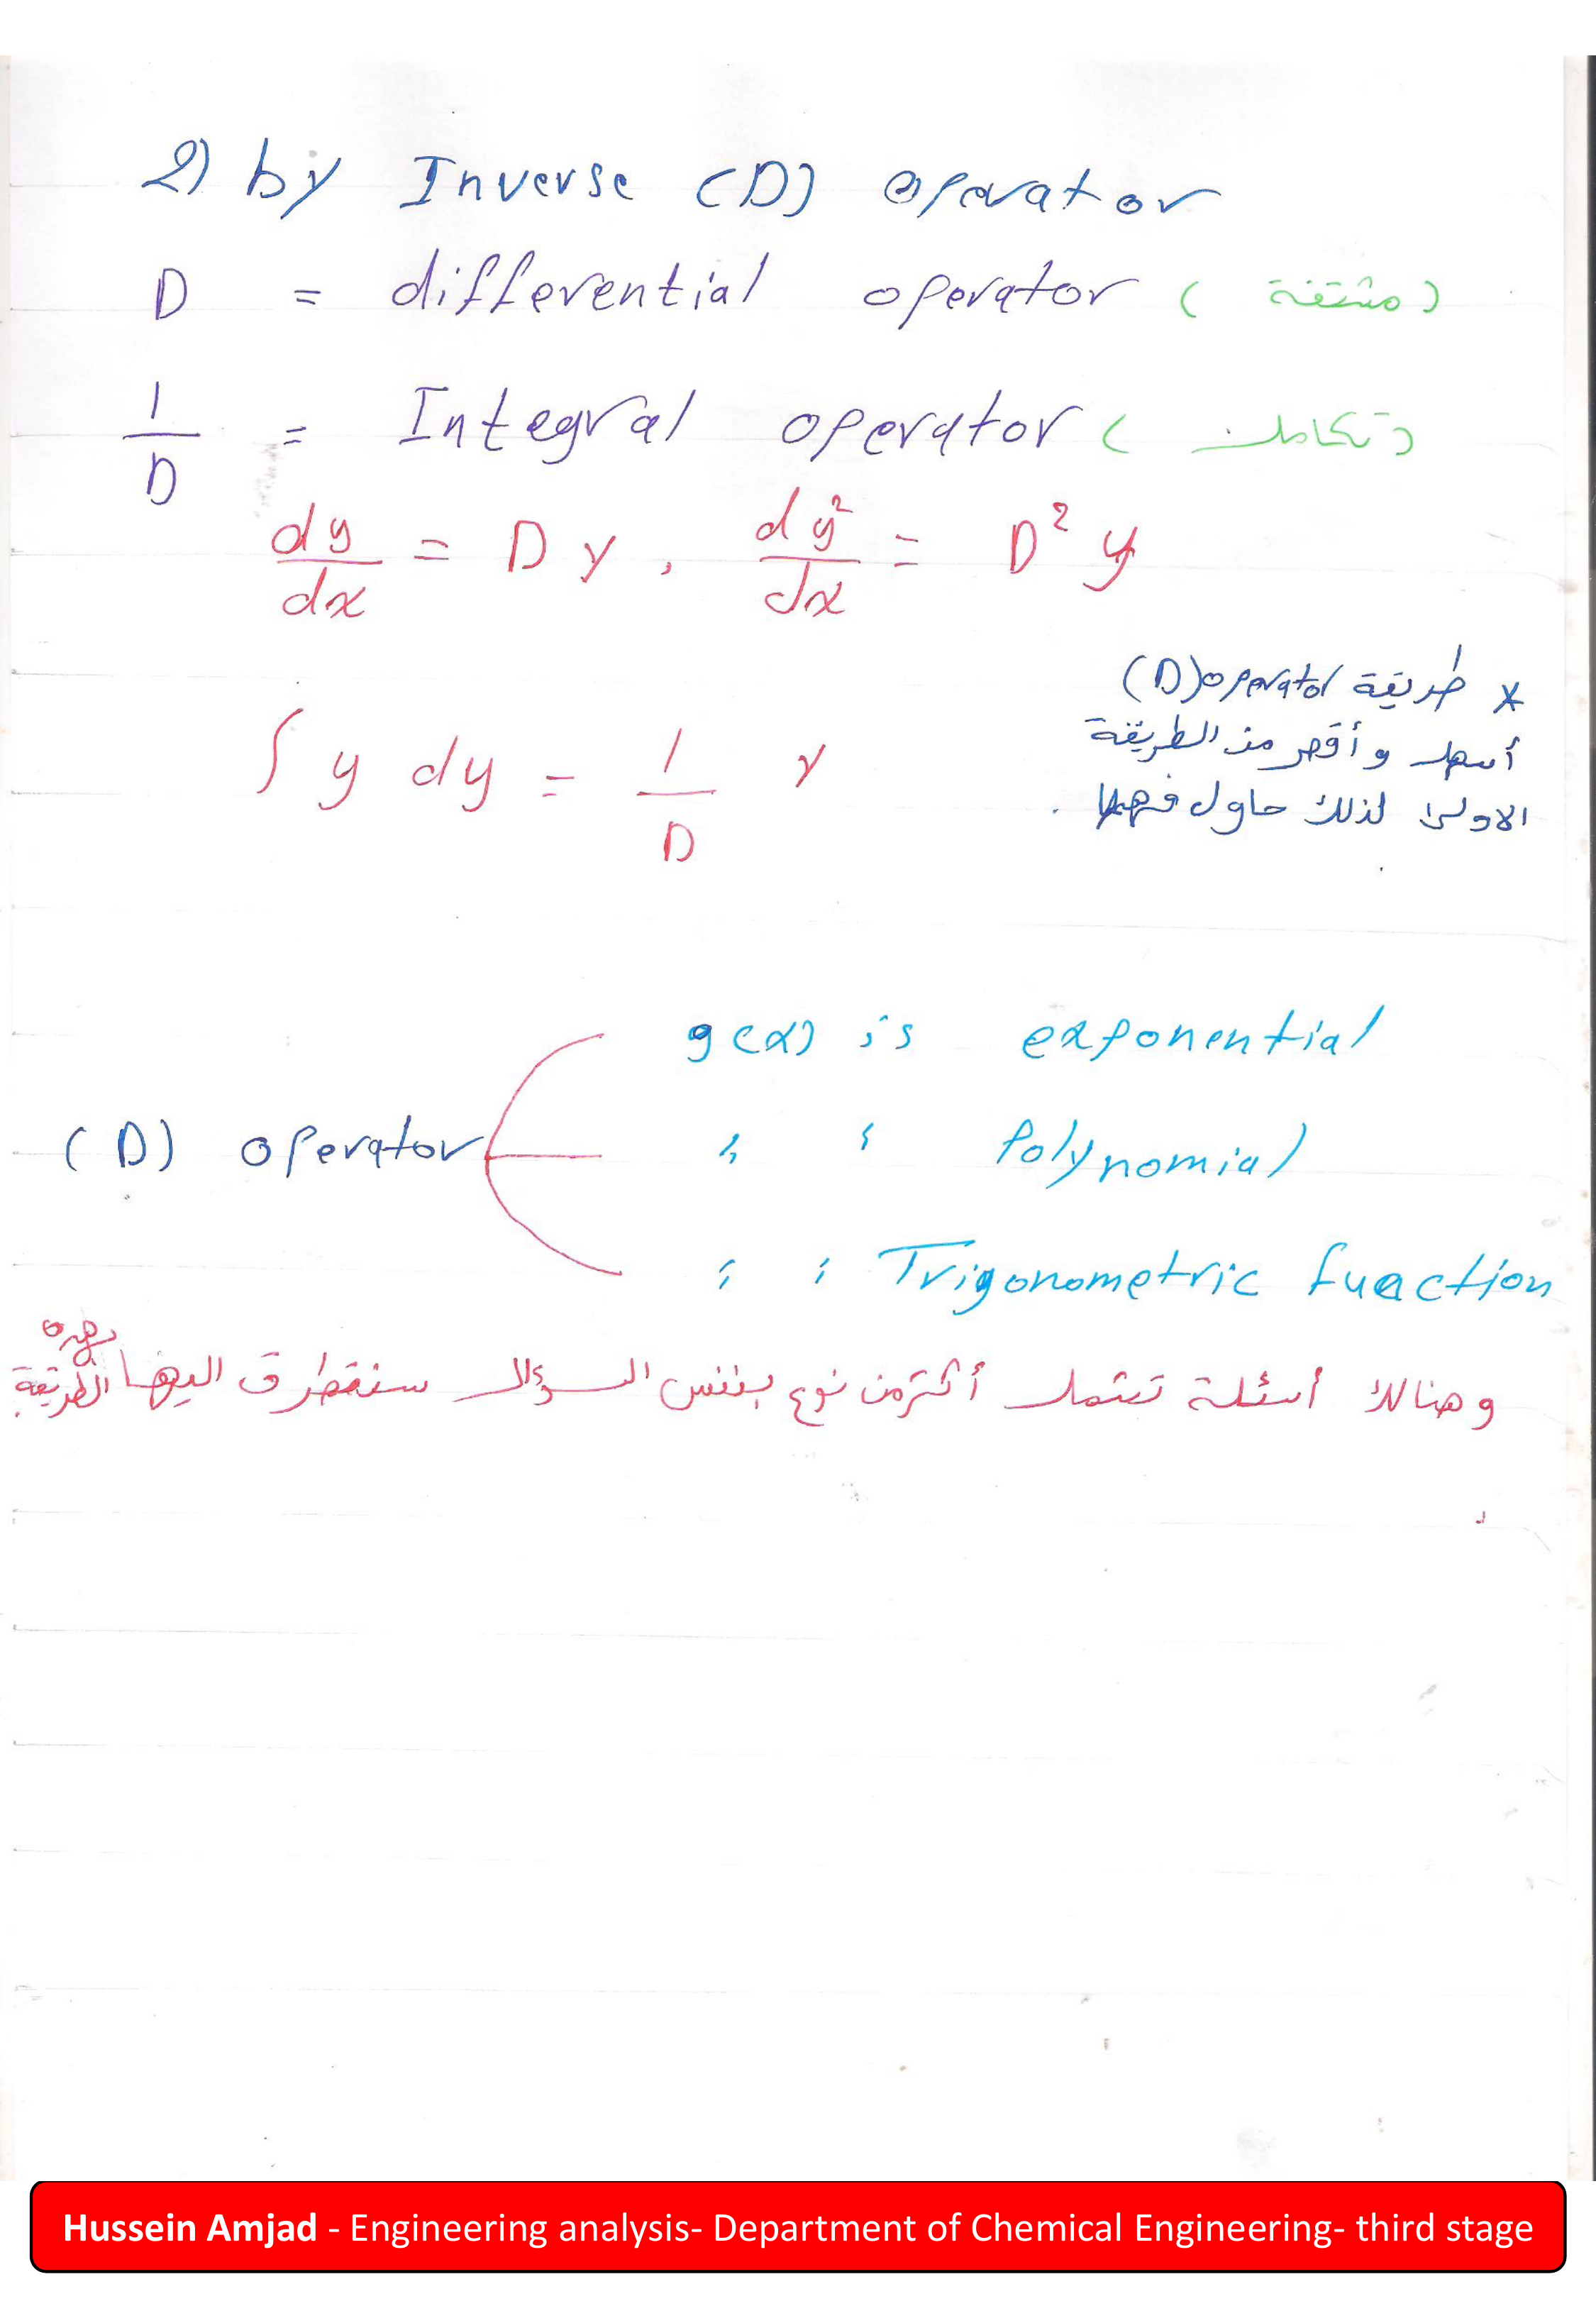 2) by Inverse (D) operator
D = differential operator (مشتقة)
1/D = Integral operator (تكامل)
dy/dx = D y , dy²/dx = D² y
* طريقة operator(D)
أسهل وأقصر من الطريقة
الاولى لذلك حاول فهمها .
∫ y dy = 1/D y
g(x) is exponential
(D) operator " " Polynomial
" " Trigonometric function
وهنالك أسئلة تشمل أكثر من نوع بنفس السؤال سنتطرق اليها بهذه الطريقة.
Hussein Amjad - Engineering analysis- Department of Chemical Engineering- third stage